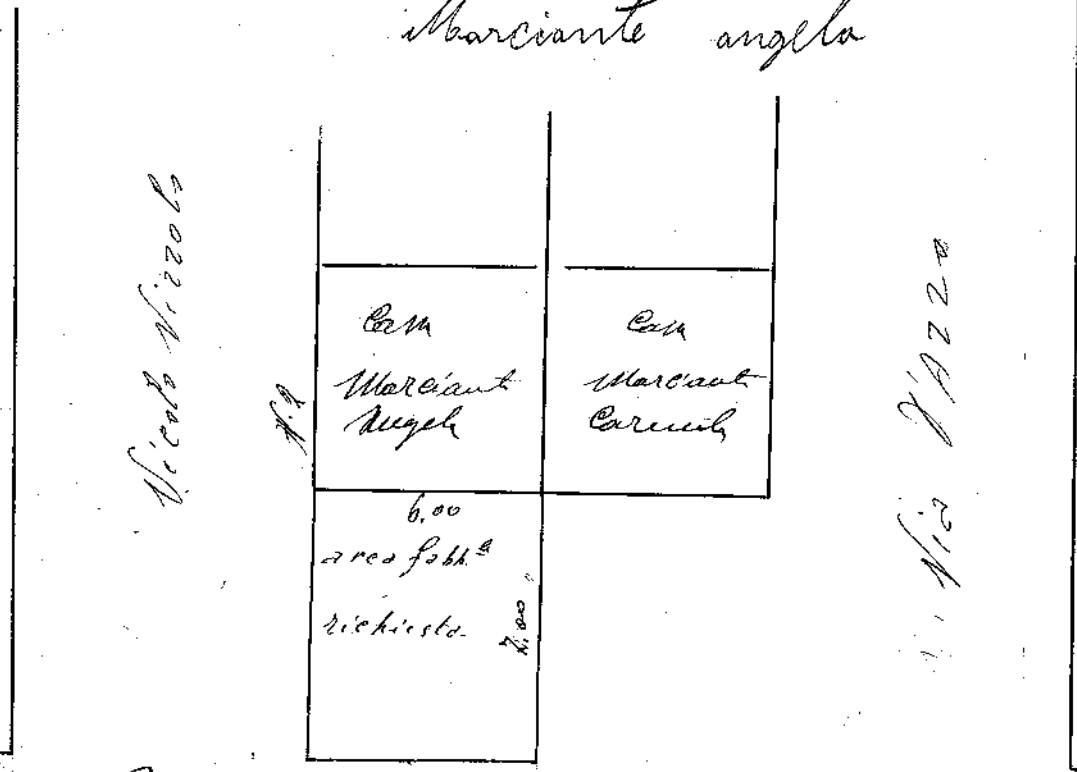 Marciante angela
Vicolo Nizzolo
N. 2
Casa
Marciant
Angela
Casa
Marciant
Carmela
6,00
area fabb.ª
richiesta
7,00
Via D'Azzo